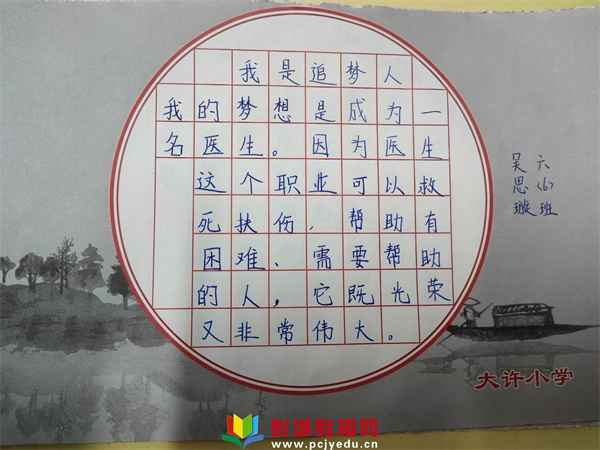 我是追梦人
我的梦想是成为一
名医生。因为医生
这个职业可以救
死扶伤，帮助有
困难、需要帮助
的人，它既光荣
又非常伟大。
六〈6〉班
吴思璇
大许小学
彭城教育网
www.pcjyedu.cn